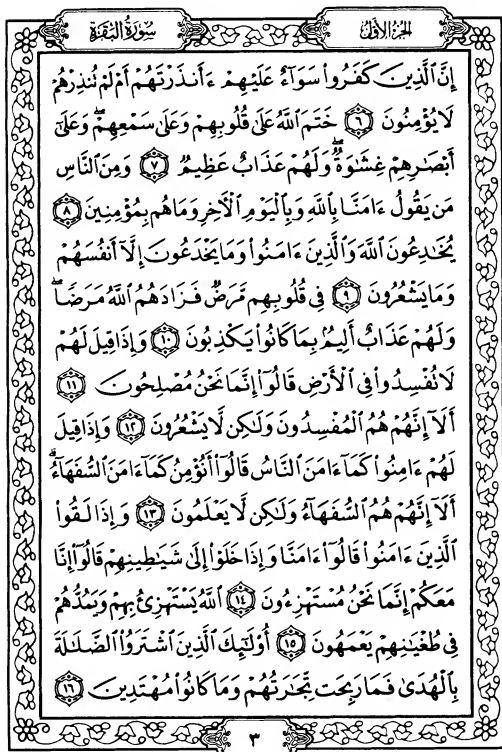 سُورَةُ البَقَرَةِ
الجُزءُ الأوّلُ
إِنَّ ٱلَّذِينَ كَفَرُوا۟ سَوَآءٌ عَلَيْهِمْ ءَأَنذَرْتَهُمْ أَمْ لَمْ تُنذِرْهُمْ
لَا يُؤْمِنُونَ ۝٦ خَتَمَ ٱللَّهُ عَلَىٰ قُلُوبِهِمْ وَعَلَىٰ سَمْعِهِمْ ۖ وَعَلَىٰٓ
أَبْصَـٰرِهِمْ غِشَـٰوَةٌ ۖ وَلَهُمْ عَذَابٌ عَظِيمٌ ۝٧ وَمِنَ ٱلنَّاسِ
مَن يَقُولُ ءَامَنَّا بِٱللَّهِ وَبِٱلْيَوْمِ ٱلْـَٔاخِرِ وَمَا هُم بِمُؤْمِنِينَ ۝٨
يُخَـٰدِعُونَ ٱللَّهَ وَٱلَّذِينَ ءَامَنُوا۟ وَمَا يَخْدَعُونَ إِلَّآ أَنفُسَهُمْ
وَمَا يَشْعُرُونَ ۝٩ فِى قُلُوبِهِم مَّرَضٌ فَزَادَهُمُ ٱللَّهُ مَرَضًا ۖ
وَلَهُمْ عَذَابٌ أَلِيمٌۢ بِمَا كَانُوا۟ يَكْذِبُونَ ۝١٠ وَإِذَا قِيلَ لَهُمْ
لَا تُفْسِدُوا۟ فِى ٱلْأَرْضِ قَالُوٓا۟ إِنَّمَا نَحْنُ مُصْلِحُونَ ۝١١
أَلَآ إِنَّهُمْ هُمُ ٱلْمُفْسِدُونَ وَلَـٰكِن لَّا يَشْعُرُونَ ۝١٢ وَإِذَا قِيلَ
لَهُمْ ءَامِنُوا۟ كَمَآ ءَامَنَ ٱلنَّاسُ قَالُوٓا۟ أَنُؤْمِنُ كَمَآ ءَامَنَ ٱلسُّفَهَآءُ ۗ
أَلَآ إِنَّهُمْ هُمُ ٱلسُّفَهَآءُ وَلَـٰكِن لَّا يَعْلَمُونَ ۝١٣ وَإِذَا لَقُوا۟
ٱلَّذِينَ ءَامَنُوا۟ قَالُوٓا۟ ءَامَنَّا وَإِذَا خَلَوْا۟ إِلَىٰ شَيَـٰطِينِهِمْ قَالُوٓا۟ إِنَّا
مَعَكُمْ إِنَّمَا نَحْنُ مُسْتَهْزِءُونَ ۝١٤ ٱللَّهُ يَسْتَهْزِئُ بِهِمْ وَيَمُدُّهُمْ
فِى طُغْيَـٰنِهِمْ يَعْمَهُونَ ۝١٥ أُو۟لَـٰٓئِكَ ٱلَّذِينَ ٱشْتَرَوُا۟ ٱلضَّلَـٰلَةَ
بِٱلْهُدَىٰ فَمَا رَبِحَت تِّجَـٰرَتُهُمْ وَمَا كَانُوا۟ مُهْتَدِينَ ۝١٦
٣